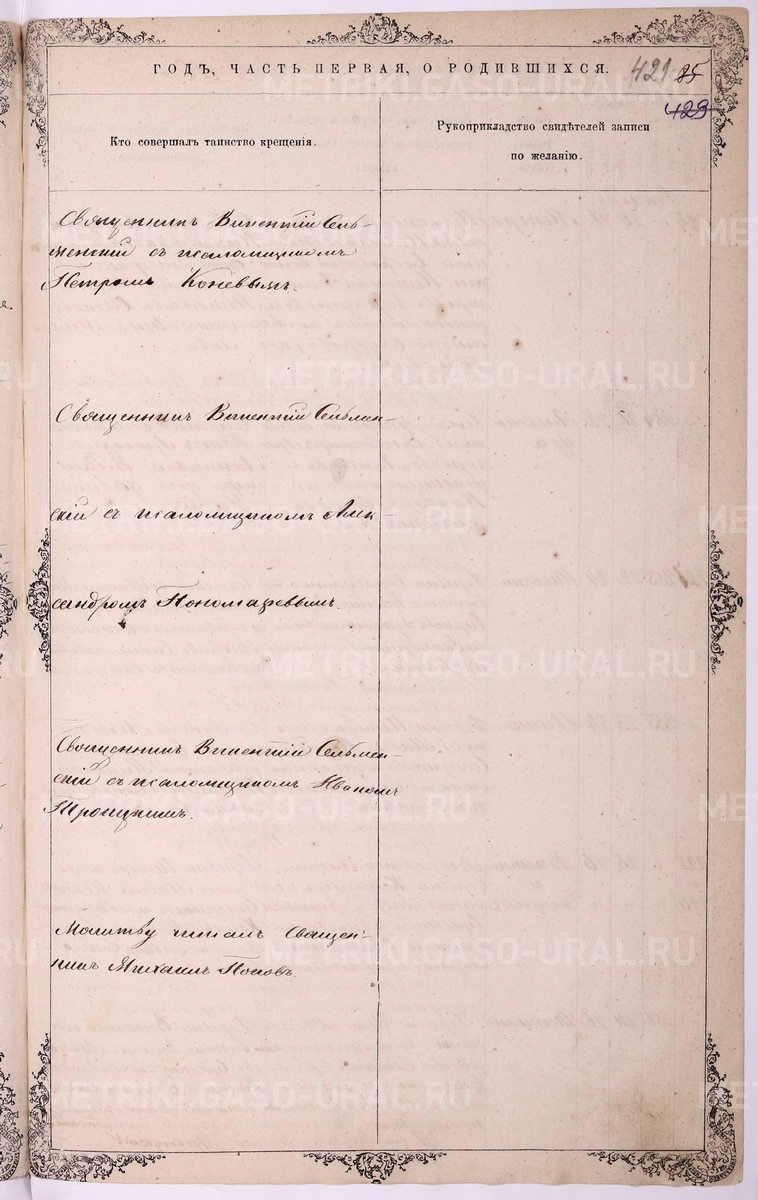 ГОДЪ, ЧАСТЬ ПЕРВАЯ, О РОДИВШИХСЯ. 421 85
429
Кто совершалъ таинство крещенія.
Рукоприкладство свидѣтелей записи
по желанію.
Священникъ Викентій Сель-
менскій съ псаломщикомъ
Петромъ Коневымъ.
Священникъ Викентій Сельмен-
скій съ псаломщикомъ Алек-
сандромъ Пономаревымъ.
Священникъ Викентій Сельмен-
скій съ псаломщикомъ Иваномъ
Молитву читалъ Священ-
никъ Михаилъ Поповъ.
METRIKI.GASO-URAL.RU